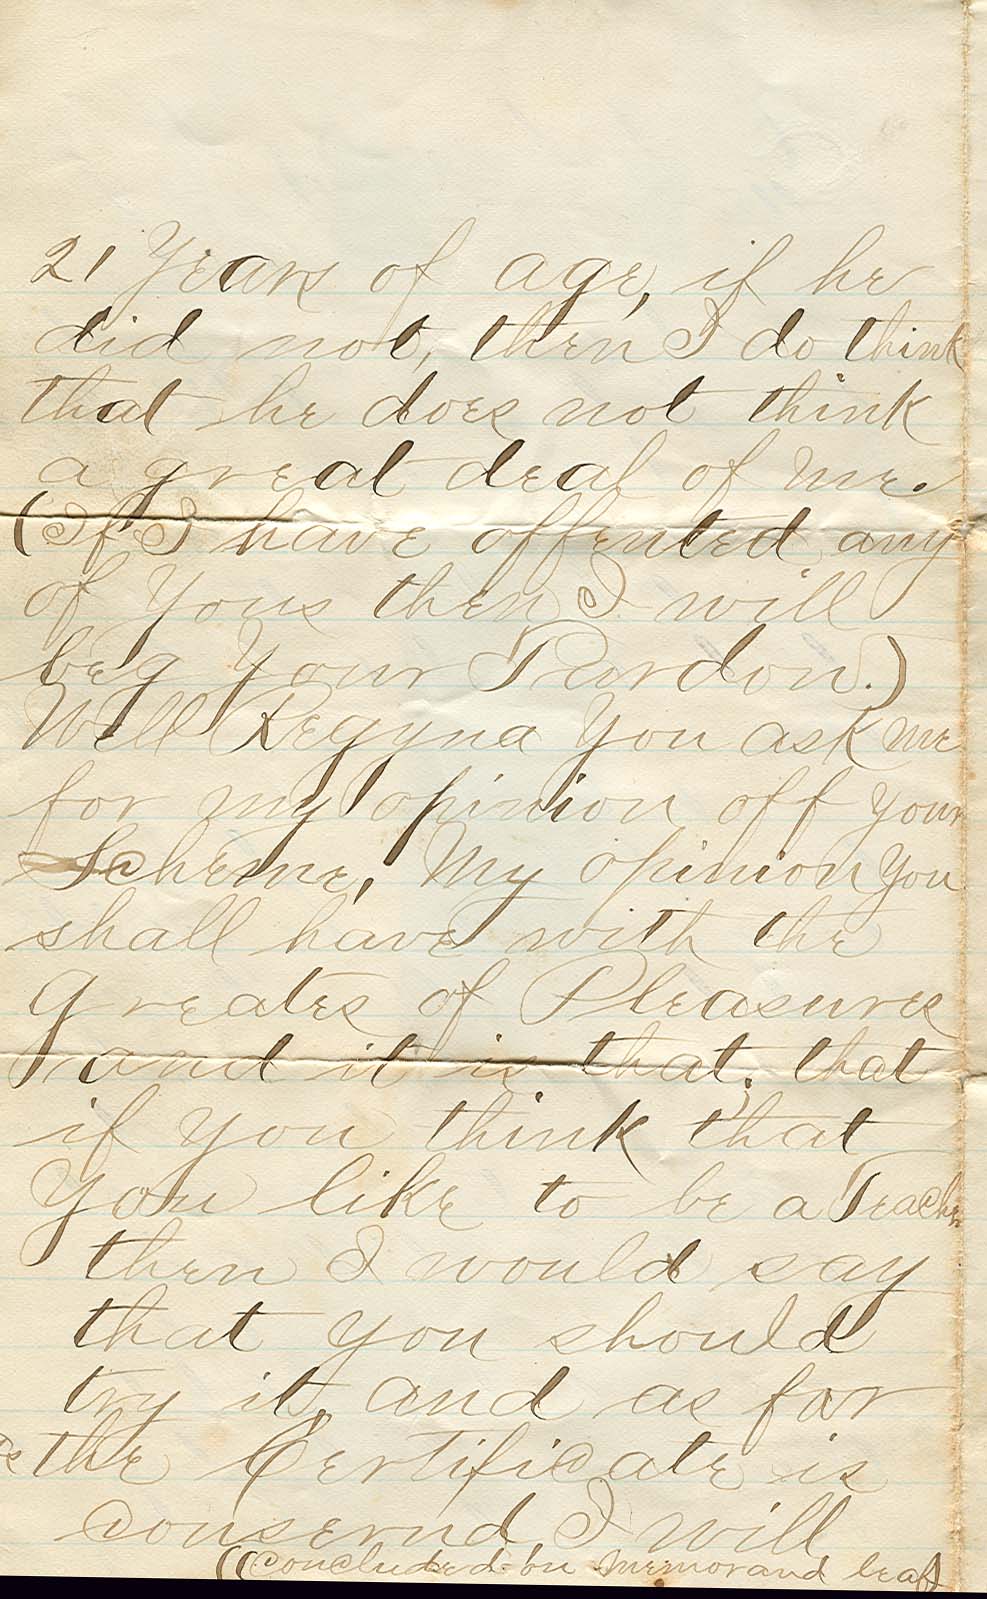 21 Years of age, if he
did not, then I do think
that he does not think
a great deal of me.
(If I have offented any
of Yous then I will
beg Your Pardon.)
Well Regyna You ask me
for my opinion off your
Scheme, My opinion You
shall have with the
greates of Pleasures
and it is that; that
if you think that
You like to be a Teacher
then I would say
that you should
try it, and as far
as the Certificate is
conserned, I will
((Concluded on memorand leaf)